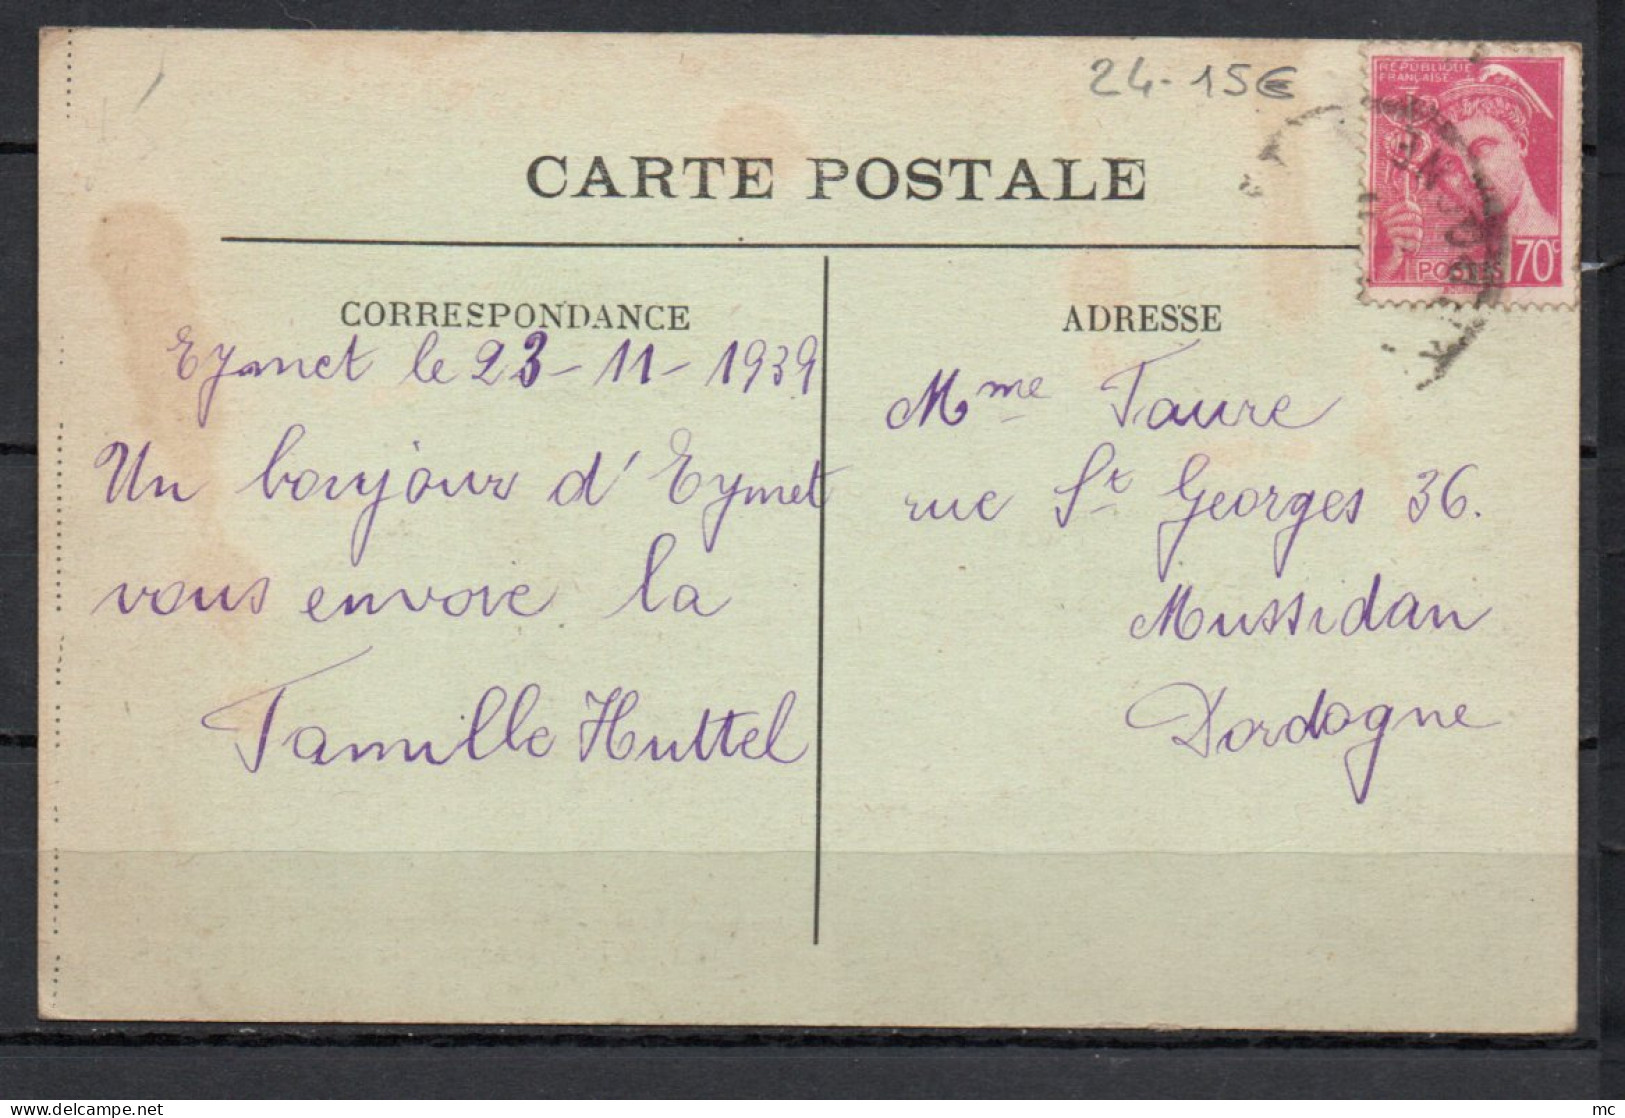 24-15€
CARTE POSTALE
RÉPUBLIQUE
FRANÇAISE
POSTES
70c
CORRESPONDANCE
Eymet le 23-11-1939
Un bonjour d'Eymet
vous envoie la
Famille Huttel
ADRESSE
Mme Faure
rue St Georges 36.
Mussidan
Dordogne
delcampe.net
mc